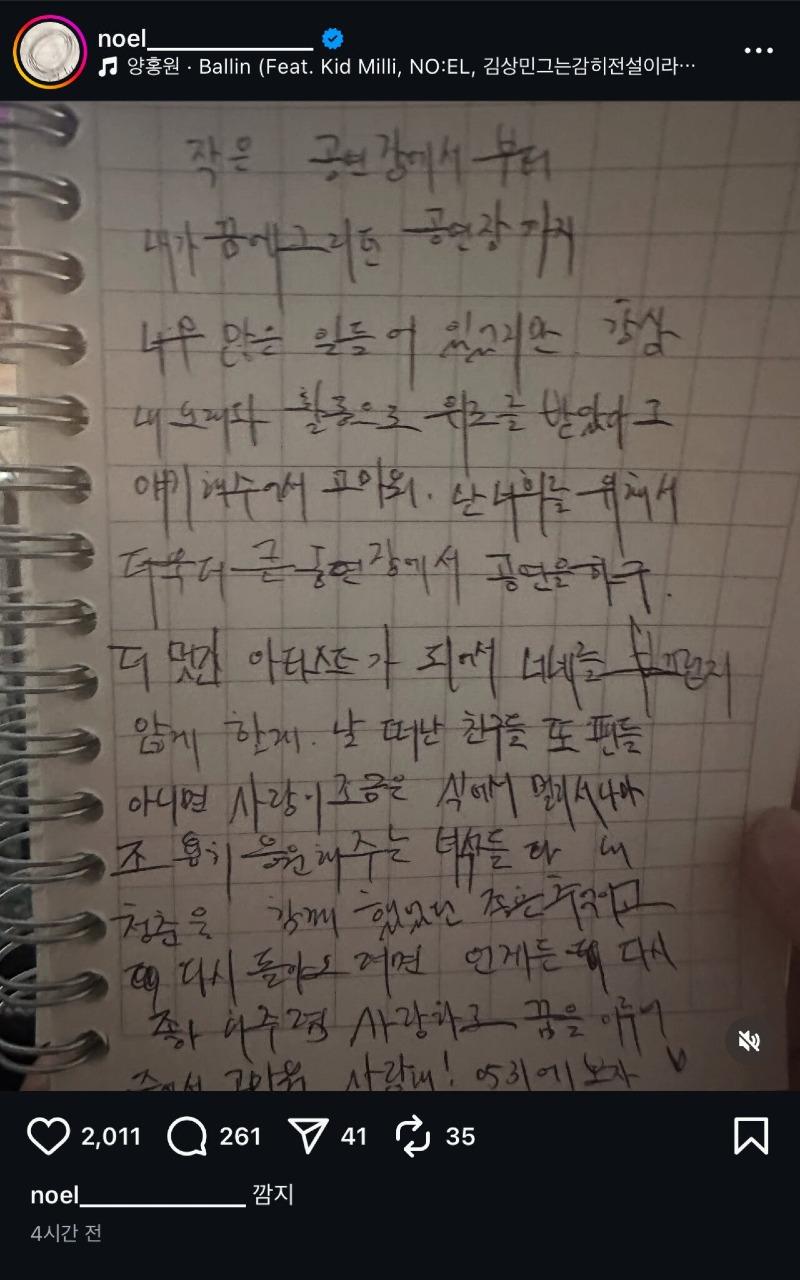 noel______________
양홍원 · Ballin (Feat. Kid Milli, NO:EL, 김상민그는감히전설이라…
작은 공연장에서 부터
내가 꿈에 그리던 공연장 까지
너무 많은 일들이 있었지만 항상
내 노래와 활동으로 위로를 받았다고
얘기해주어서 고마워. 난 너희를 위해서
더욱더 큰 공연장에서 공연을 하구.
더 멋진 아티스트가 되어서 너네를 부끄럽지
않게 할게. 날 떠난 친구들 또 팬들
아니면 사랑이 조금은 식어서 멀리서나마
조용히 응원해주는 녀석들 다 내
청춘을 함께 했었던 좋은 추억이고
다시 돌아오려면 언제든 다시
좋아해주렴 사랑하고 꿈을 이루어
주어서 고마워 사랑해! 0531에 보자
2,011
261
41
35
noel______________ 깜지
4시간 전